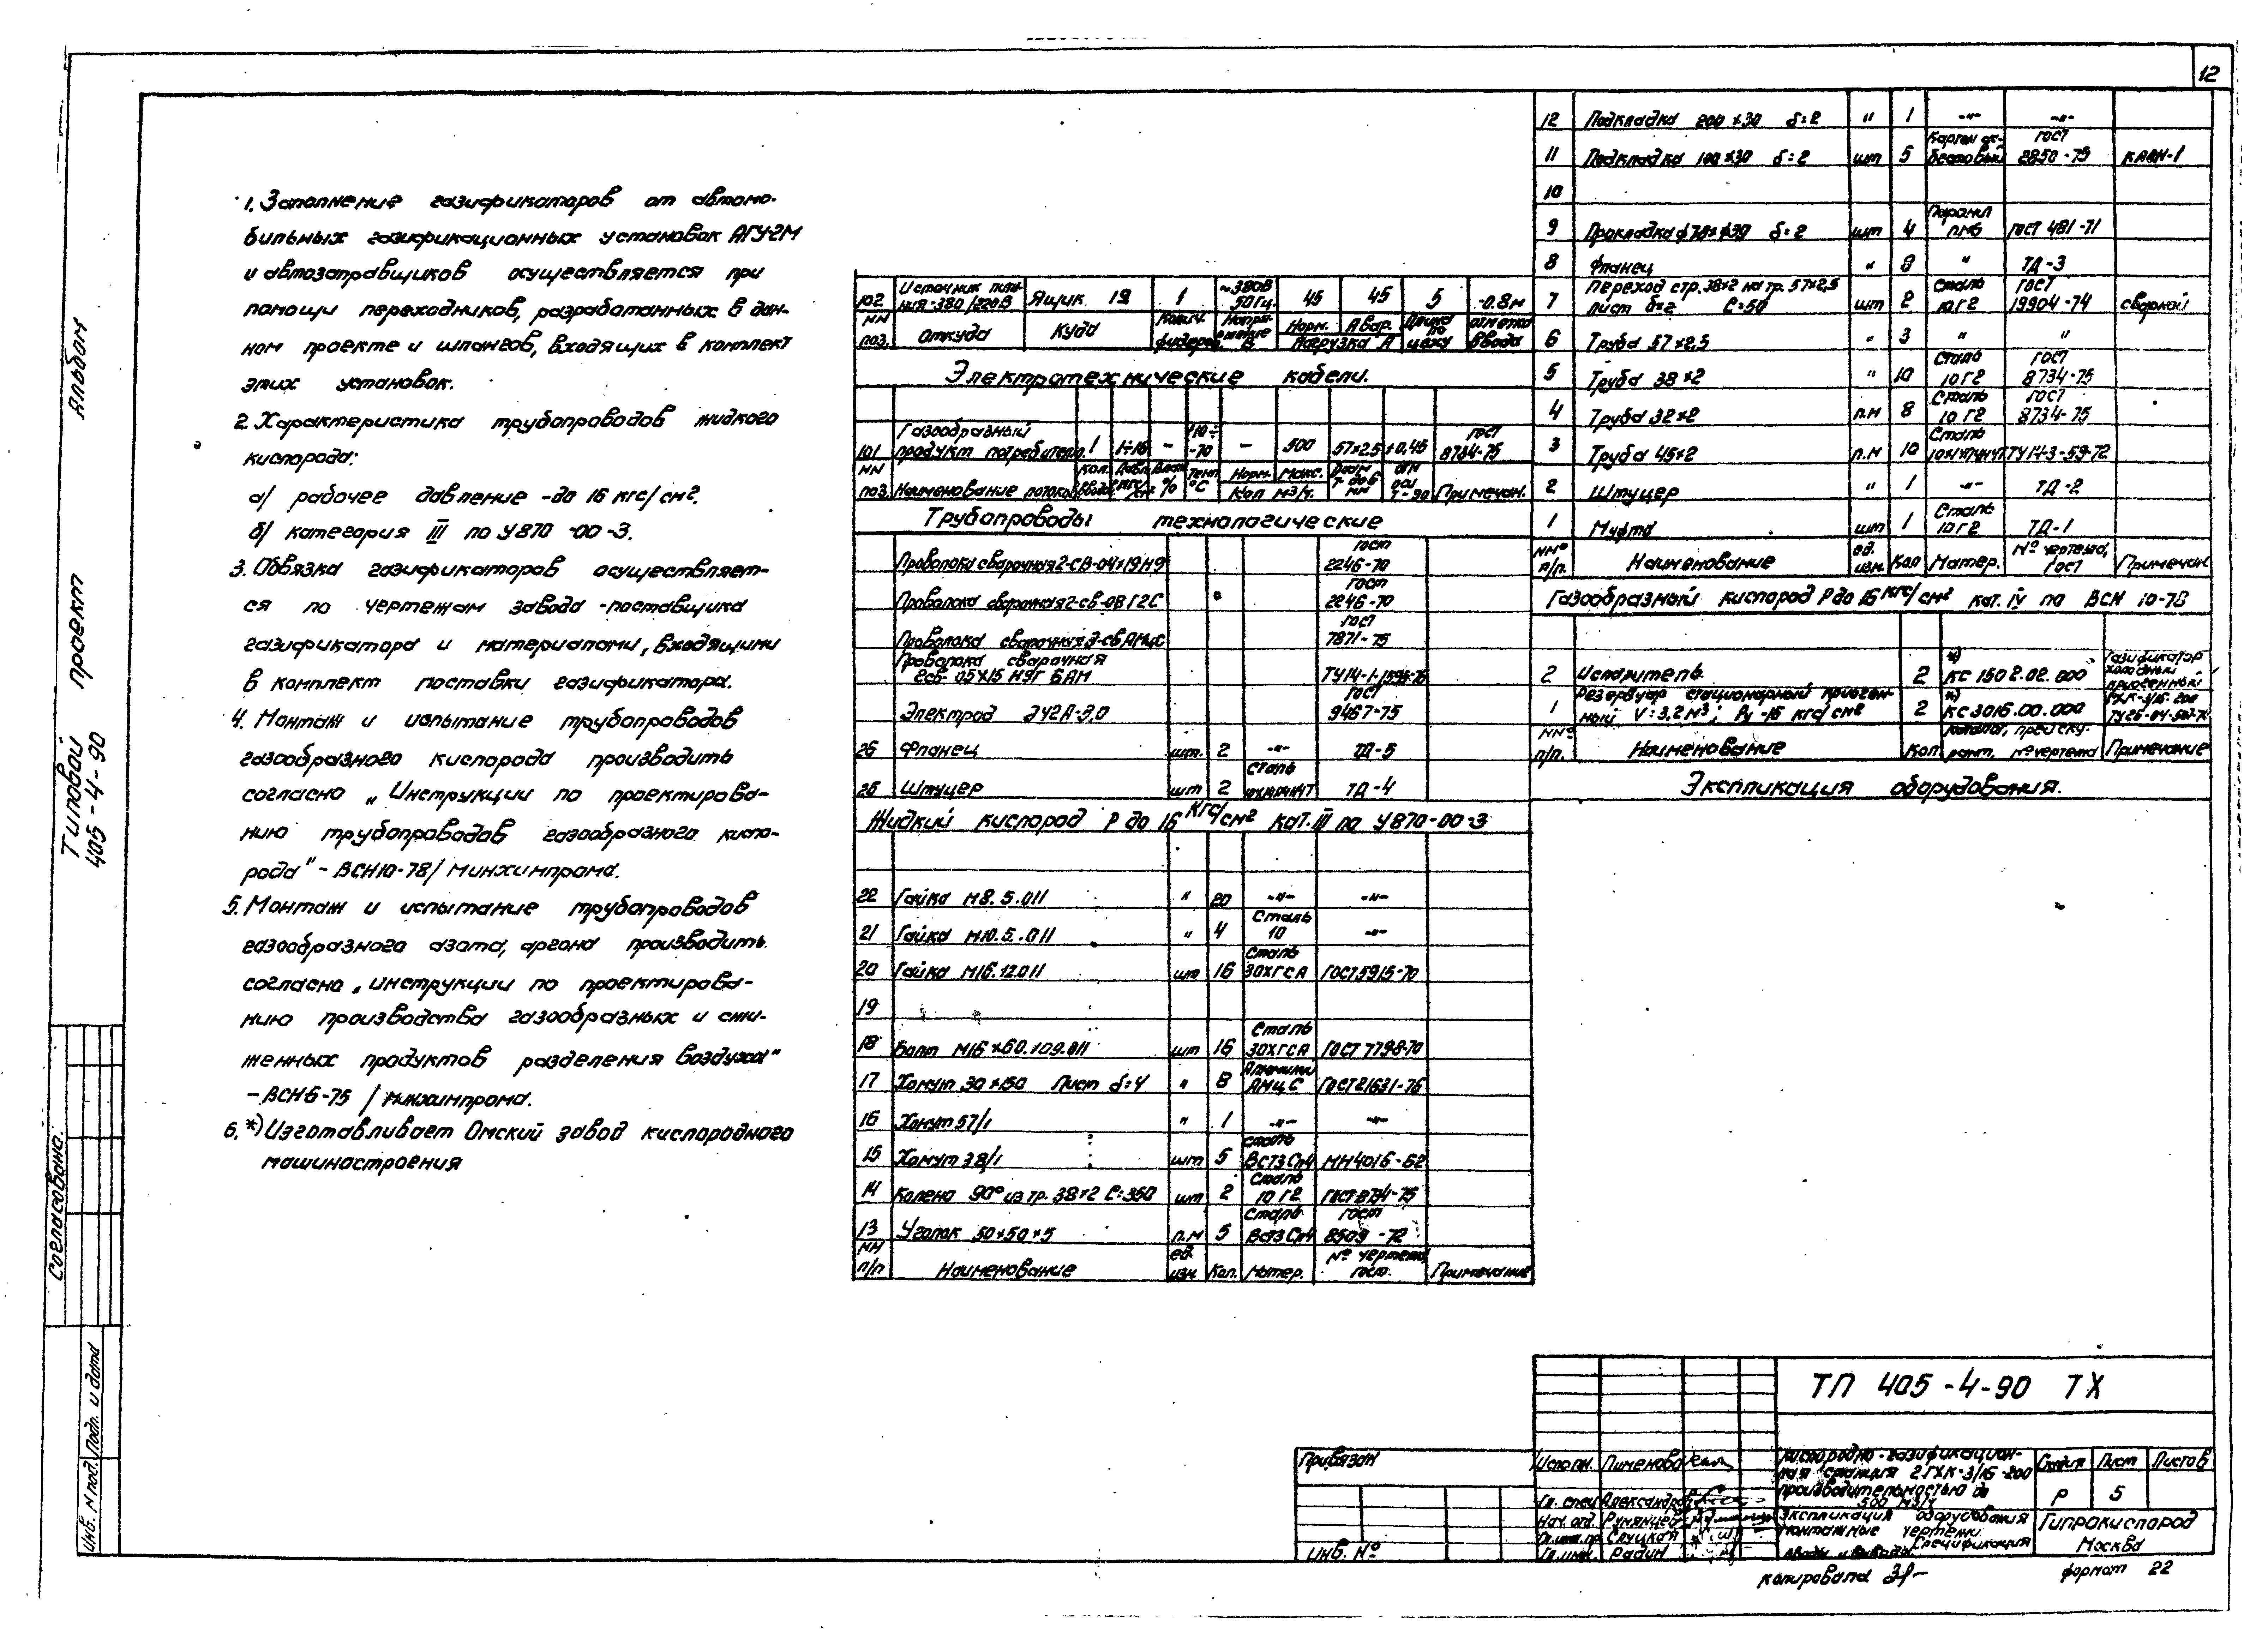 12
Альбом
Типовой проект
405-4-90
Согласовано:
Инв. N подл. Подп. и дата
1. Заполнение газификаторов от автомо-
бильных газификационных установок АГУ-2М
и автозаправщиков осуществляется при
помощи переходников, разработанных в дан-
ном проекте и шлангов, входящих в комплект
этих установок.
2. Характеристика трубопроводов жидкого
кислорода:
а/ рабочее давление - до 16 кгс/см².
б/ категория III по У870-00-3.
3. Обвязка газификаторов осуществляет-
ся по чертежам завода-поставщика
газификатора и материалами, входящими
в комплект поставки газификатора.
4. Монтаж и испытание трубопроводов
газообразного кислорода производить
согласно „Инструкции по проектирова-
нию трубопроводов газообразного кисло-
рода" - ВСН10-78/Минхимпрома.
5. Монтаж и испытание трубопроводов
газообразного азота, аргона производить
согласно „инструкции по проектирова-
нию производства газообразных и сжи-
женных продуктов разделения воздуха"
- ВСН6-75 / Минхимпрома.
6. *) Изготавливает Омский завод кислородного
машиностроения
102 Источник пита-ния ~380/220В Ящик 19 1 ~380В 50Гц 45 45 5 -0.8м
NN поз. Откуда Куда Колич. фидеров Напря-жение В Норм. Авар. Нагрузка А Длина по цеху Отметка ввода
Электротехнические кабели.
101 Газообразный продукт потребителю 1 1÷16 - -70 - 500 57×2.5 +0,45 ГОСТ 8734-75
NN поз. Наименование потоков Кол. вводов Давл. кгс/см² Влаж. % Темп. °С Норм. Макс. Кол м³/ч. Примечан.
Трубопроводы технологические
Проволока сварочная 2-СВ-04×19Н9 ГОСТ 2246-70
Проволока сварочная 2-св-08Г2С " ГОСТ 2246-70
Проволока сварочная 3-св АМцС ГОСТ 7871-75
Проволока сварочная ТУ14-1-1595-75
Электрод Э42А-3,0 ГОСТ 9467-75
26 Фланец шт. 2 -"- ТД-5
25 Штуцер шт 2 Сталь ТД-4
Жидкий кислород Р до 16 кгс/см² кат. III по У870-00-3
22 Гайка М8.5.011 " 20 -"- -"-
21 Гайка М10.5.011 " 4 Сталь 10 -"-
20 Гайка М16.12.011 шт 16 Сталь 30ХГСА ГОСТ5915-70
19
18 Болт М16×60.109.011 шт 16 Сталь 30ХГСА ГОСТ 7798-70
17 Хомут 30×150 Лист δ=4 " 8 Алюминий АМцС ГОСТ21631-76
16 Хомут 57/1 " 1 -"- -"-
15 Хомут 38/1 шт 5 Сталь ВСт3Сп4 МН4016-62
14 Колено 90° из тр. 38×2 ℓ=350 шт 2 Сталь 10Г2 ГОСТ8734-75
13 Уголок 50×50×5 п.м 5 Сталь ВСт3Сп4 ГОСТ 8509-72
NN п/п Наименование ед. изм. Кол. Матер. № чертежа, ГОСТ. Примечание
12 Подкладка 200×30 δ=2 " 1 -"- -"-
11 Подкладка 100×30 δ=2 шт 5 Картон ас-бестовый ГОСТ 2850-75 КАОН-1
10
9 Прокладка ф78×ф39 δ=2 шт 4 Паронит ПМБ ГОСТ 481-71
8 Фланец " 8 " ТД-3
7 Переход с тр. 38×2 на тр. 57×2,5 лист δ=2 ℓ=50 шт 2 Сталь 10Г2 ГОСТ 19904-74 сварной
6 Труба 57×2,5 " 3 " "
5 Труба 38×2 " 10 Сталь 10Г2 ГОСТ 8734-75
4 Труба 32×2 п.м 8 Сталь 10Г2 ГОСТ 8734-75
3 Труба 45×2 п.м 10 Сталь ТУ14-3-59-72
2 Штуцер " 1 -"- ТД-2
1 Муфта шт 1 Сталь 10Г2 ТД-1
NN° п/п. Наименование ед. изм. Кол Матер. № чертежа, ГОСТ Примечан
Газообразный кислород Р до 16 кгс/см² кат. IV по ВСН 10-78
2 Испаритель 2 *) КС 1502.02.000 Газификатор холодный криогенный ГХК-3/16-200
1 Резервуар стационарный криоген-ный V=3,2м³; Ру-16 кгс/см² 2 *) КС3016.00.000
NN° п/п. Наименование Кол. Каталог, прейску-рант, № чертежа Примечание
Экспликация оборудования.
ТП 405-4-90 ТХ
Привязан
Инв. №
Исполн. Пименова
Гл. спец Александров
Нач. отд. Румянцев
Гл. инж. пр Слуцкая
Гл. инж. Радин
Кислородно-газификацион-
ная станция 2ГХК-3/16-200
производительностью до
500 м3/ч
Стадия Лист Листов
Р 5
Экспликация оборудования
Монтажные чертежи.
Вводы и выводы. Спецификация
Гипрокислород
Москва
Копировала
формат 22